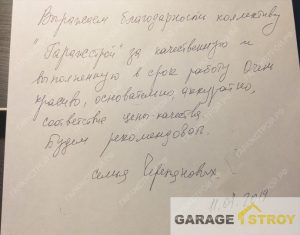 Выражаем благодарность коллективу
"Гаражстрой" за качественную и
выполненную в срок работу Очень
красиво, основательно, аккуратно,
соответствие цены-качества.
Будем рекомендовать.
семья
11.07.2019
GARAGE STROY